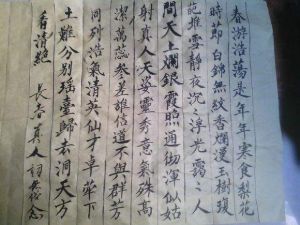 春游浩荡是年年寒食梨花
时节白锦無紋香爛漫玉樹瓊
葩堆雪静夜沉沉浮光靄靄人
間天上爛銀霞照通徹渾似姑
射真人天姿靈秀意氣殊高
潔萬蕊参差誰信道不與群芳
同列浩氣清英仙才卓犖下
土難分别瑶臺歸去洞天方
看清絶
長春真人詞